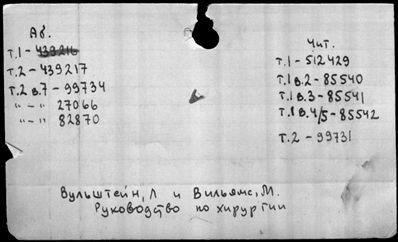 Аб.
т.1 - 439216
т.2 - 439217
т.2 в.7 - 99734
"-" 27066
"-" 82870
Чит.
т.1 - 512429
т.1 в.2 - 85540
т.1 в.3 - 85541
т.1 в.4/5 - 85542
т.2 - 99731
Вульштейн, Л и Вильямс, М.
Руководство по хирургии